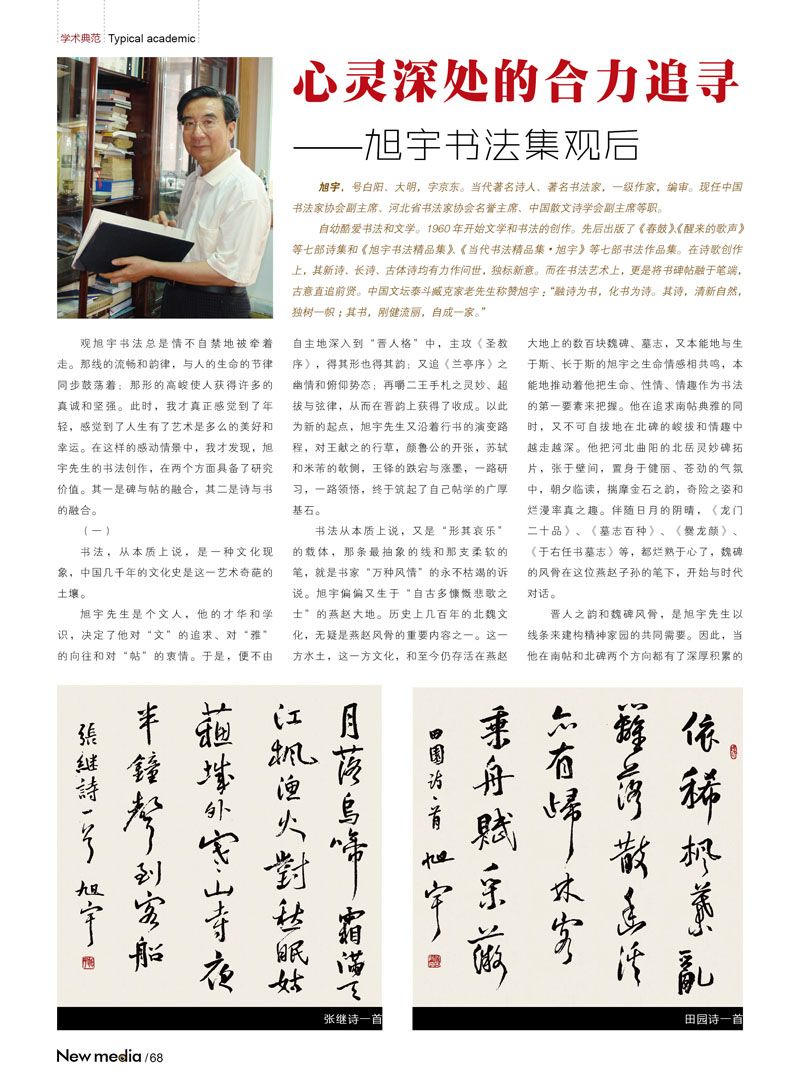 学术典范 Typical academic
心灵深处的合力追寻
——旭宇书法集观后
旭宇，号白阳、大明，字京东。当代著名诗人、著名书法家，一级作家，编审。现任中国
书法家协会副主席、河北省书法家协会名誉主席、中国散文诗学会副主席等职。
自幼酷爱书法和文学。1960年开始文学和书法的创作。先后出版了《春鼓》、《醒来的歌声》
等七部诗集和《旭宇书法精品集》、《当代书法精品集·旭宇》等七部书法作品集。在诗歌创作
上，其新诗、长诗、古体诗均有力作问世，独标新意。而在书法艺术上，更是将书碑帖融于笔端，
古意直追前贤。中国文坛泰斗臧克家老先生称赞旭宇：“融诗为书，化书为诗。其诗，清新自然，
独树一帜；其书，刚健流丽，自成一家。”
观旭宇书法总是情不自禁地被牵着
走。那线的流畅和韵律，与人的生命的节律
同步鼓荡着；那形的高峻使人获得许多的
真诚和坚强。此时，我才真正感觉到了年
轻，感觉到了人生有了艺术是多么的美好和
幸运。在这样的感动情景中，我才发现，旭
宇先生的书法创作，在两个方面具备了研究
价值。其一是碑与帖的融合，其二是诗与书
的融合。
（一）
书法，从本质上说，是一种文化现
象，中国几千年的文化史是这一艺术奇葩的
土壤。
旭宇先生是个文人，他的才华和学
识，决定了他对“文”的追求、对“雅”
的向往和对“帖”的衷情。于是，便不由
自主地深入到“晋人格”中，主攻《圣教
序》，得其形也得其韵；又追《兰亭序》之
幽情和俯仰势态；再嚼二王手札之灵妙、超
拔与弦律，从而在晋韵上获得了收成。以此
为新的起点，旭宇先生又沿着行书的演变路
程，对王献之的行草，颜鲁公的开张，苏轼
和米芾的欹侧，王铎的跌宕与涨墨，一路研
习，一路领悟，终于筑起了自己帖学的广厚
基石。
书法从本质上说，又是“形其哀乐”
的载体，那条最抽象的线和那支柔软的
笔，就是书家“万种风情”的永不枯竭的诉
说。旭宇偏偏又生于“自古多慷慨悲歌之
士”的燕赵大地。历史上几百年的北魏文
化，无疑是燕赵风骨的重要内容之一。这一
方水土，这一方文化，和至今仍存活在燕赵
大地上的数百块魏碑、墓志，又本能地与生
于斯、长于斯的旭宇之生命情感相共鸣，本
能地推动着他把生命、性情、情趣作为书法
的第一要素来把握。他在追求南帖典雅的同
时，又不可自拔地在北碑的峻拔和情趣中
越走越深。他把河北曲阳的北岳灵妙碑拓
片，张于壁间，置身于健丽、苍劲的气氛
中，朝夕临读，揣摩金石之韵，奇险之姿和
烂漫率真之趣。伴随日月的阴晴，《龙门
二十品》、《墓志百种》、《爨龙颜》、
《于右任书墓志》等，都烂熟于心了，魏碑
的风骨在这位燕赵子孙的笔下，开始与时代
对话。
晋人之韵和魏碑风骨，是旭宇先生以
线条来建构精神家园的共同需要。因此，当
他在南帖和北碑两个方向都有了深厚积累的
月落烏啼霜满天
江枫渔火對愁眠姑
蘇城外寒山寺夜
半鐘聲到客船
張继詩一首 旭宇
张继诗一首
依稀枫葉亂
籬落散幽溪
亦有歸林客
乘舟賦采薇
田園诗一首 旭宇
田园诗一首
New media /68